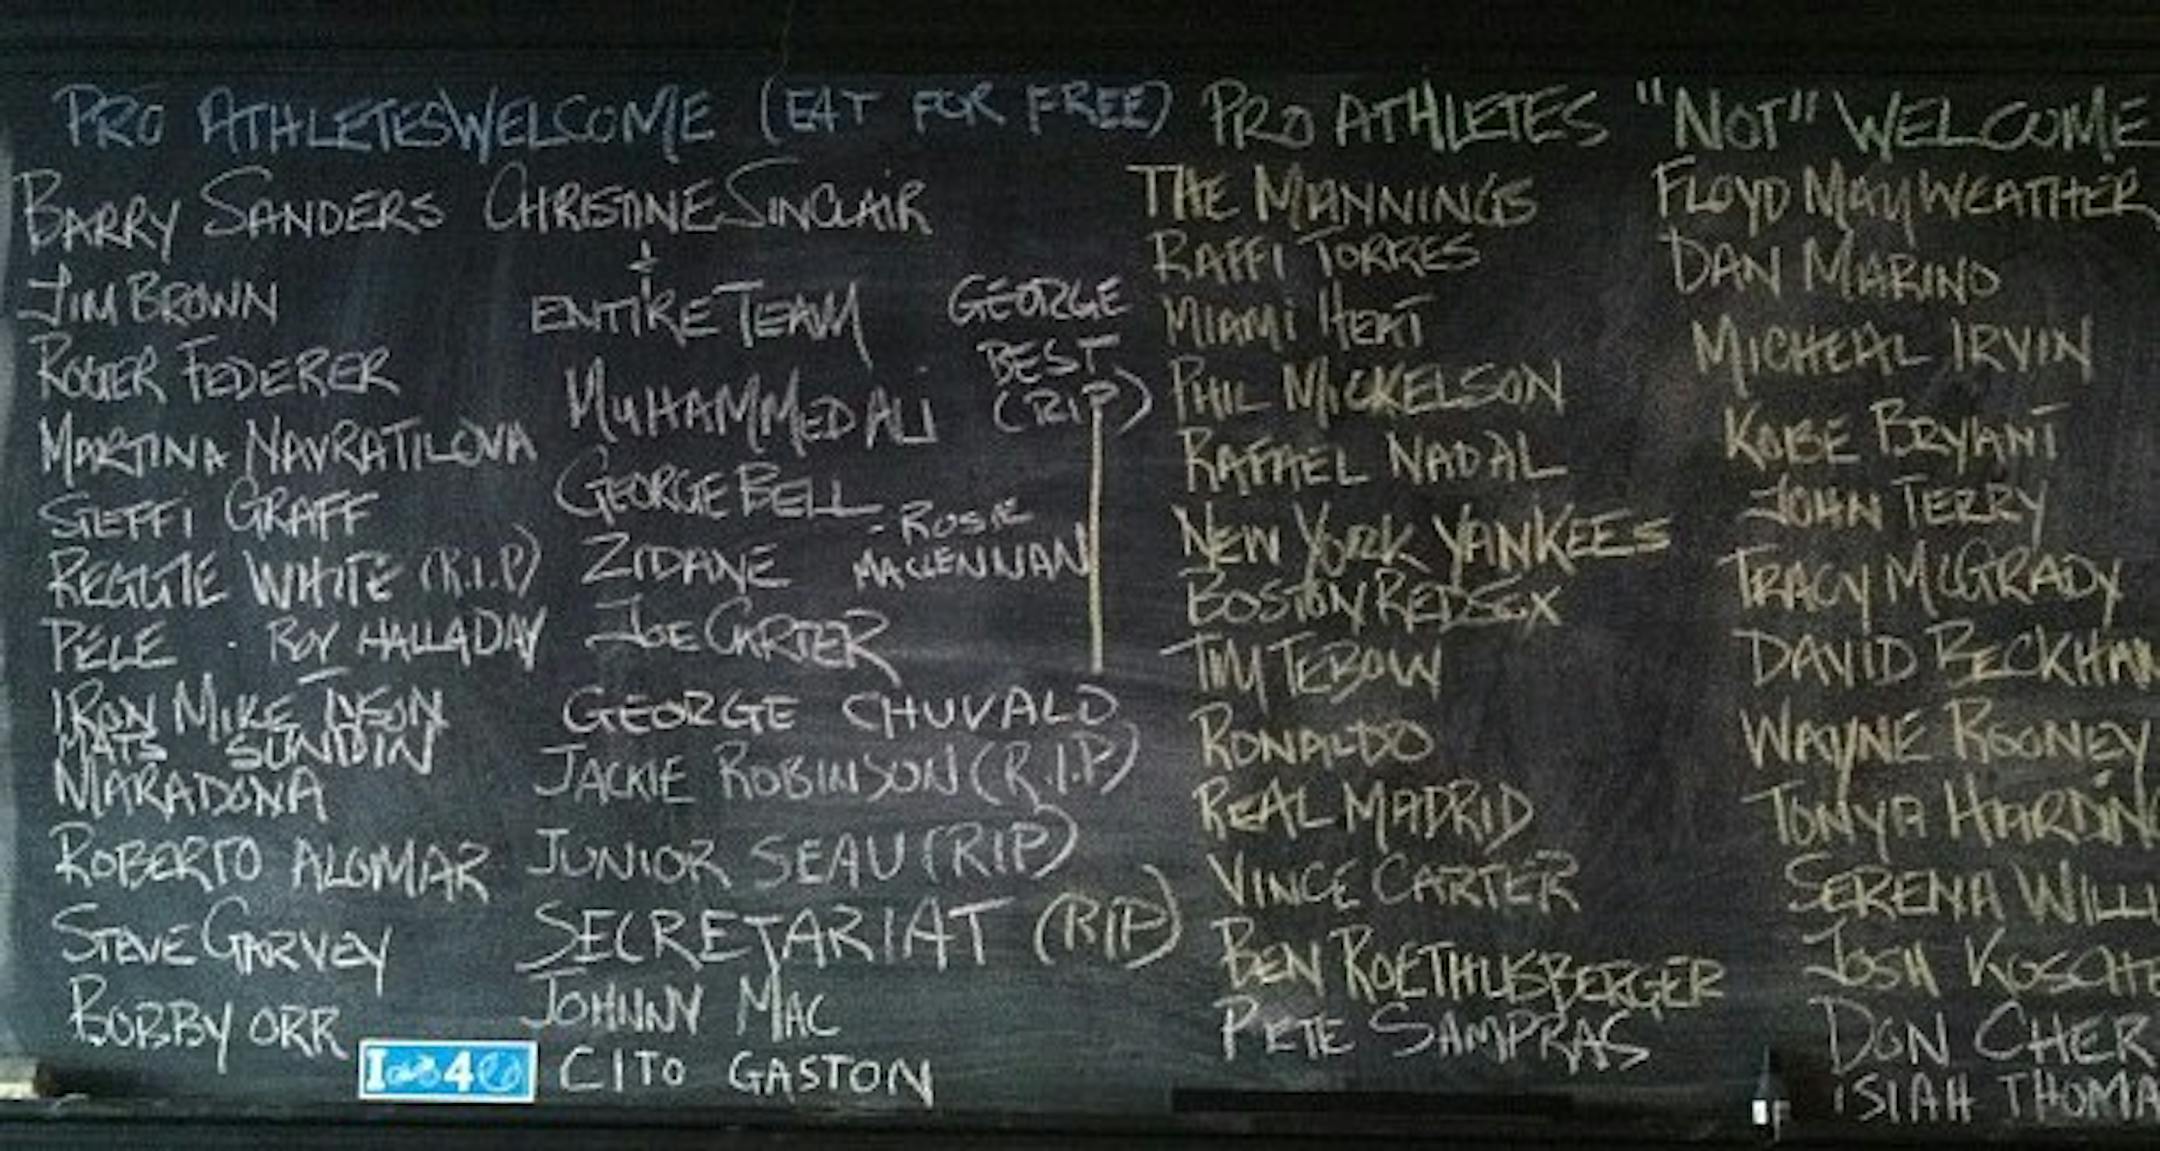 PRO ATHLETES WELCOME (EAT FOR FREE)
BARRY SANDERS
JIM BROWN
ROGER FEDERER
MARTINA NAVRATILOVA
STEFFI GRAFF
REGGIE WHITE (R.I.P)
PELE · ROY HALLADAY
IRON MIKE TYSON
MATS SUNDIN
MARADONA
ROBERTO ALOMAR
STEVE GARVEY
BOBBY ORR
CHRISTINE SINCLAIR
+
ENTIRE TEAM
MUHAMMED ALI
GEORGE BELL
ZIDANE
JOE CARTER
GEORGE CHUVALO
JACKIE ROBINSON (R.I.P)
JUNIOR SEAU (RIP)
SECRETARIAT (RIP)
JOHNNY MAC
CITO GASTON
GEORGE
BEST
(RIP)
- ROSIE
MACLENNAN
PRO ATHLETES "NOT" WELCOME
THE MANNINGS
RAFFI TORRES
MIAMI HEAT
PHIL MICKELSON
RAFAEL NADAL
NEW YORK YANKEES
BOSTON REDSOX
TIM TEBOW
RONALDO
REAL MADRID
VINCE CARTER
BEN ROETHLISBERGER
PETE SAMPRAS
FLOYD MAYWEATHER
DAN MARINO
MICHEAL IRVIN
KOBE BRYANT
JOHN TERRY
TRACY MCGRADY
DAVID BECKHAM
WAYNE ROONEY
TONYA HARDING
SERENA WILLI
JOSH KOSCHE
DON CHER
ISIAH THOMA